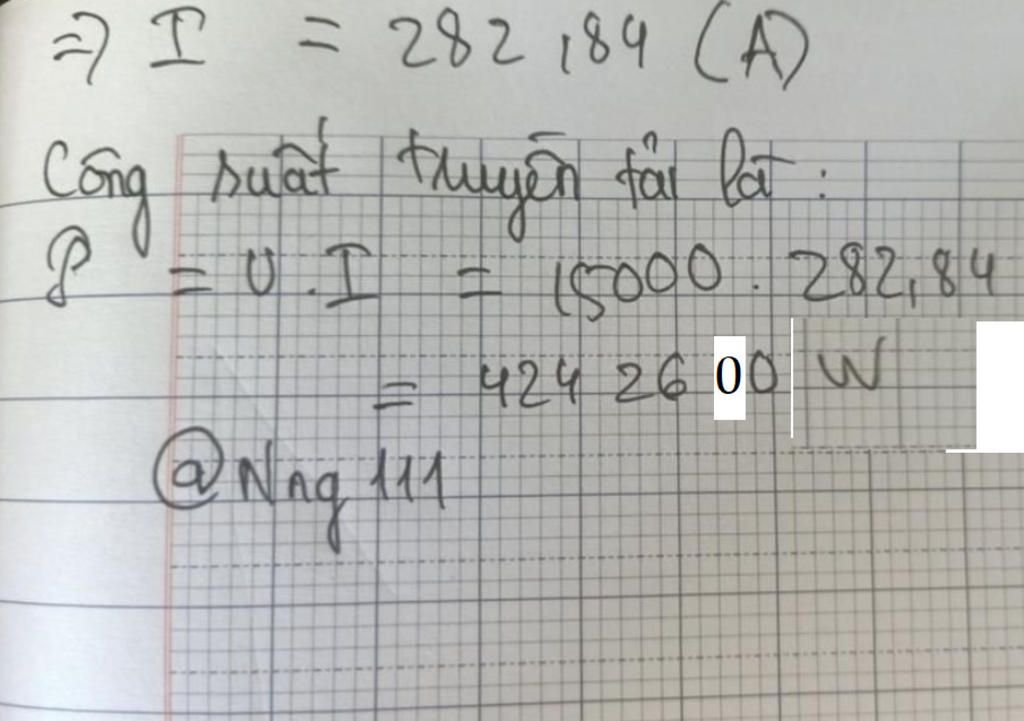 => I = 282,84 (A)
Công suất truyền tải là :
P = U . I = 15000 . 282,84
= 424 26 00 W
@Nng 111